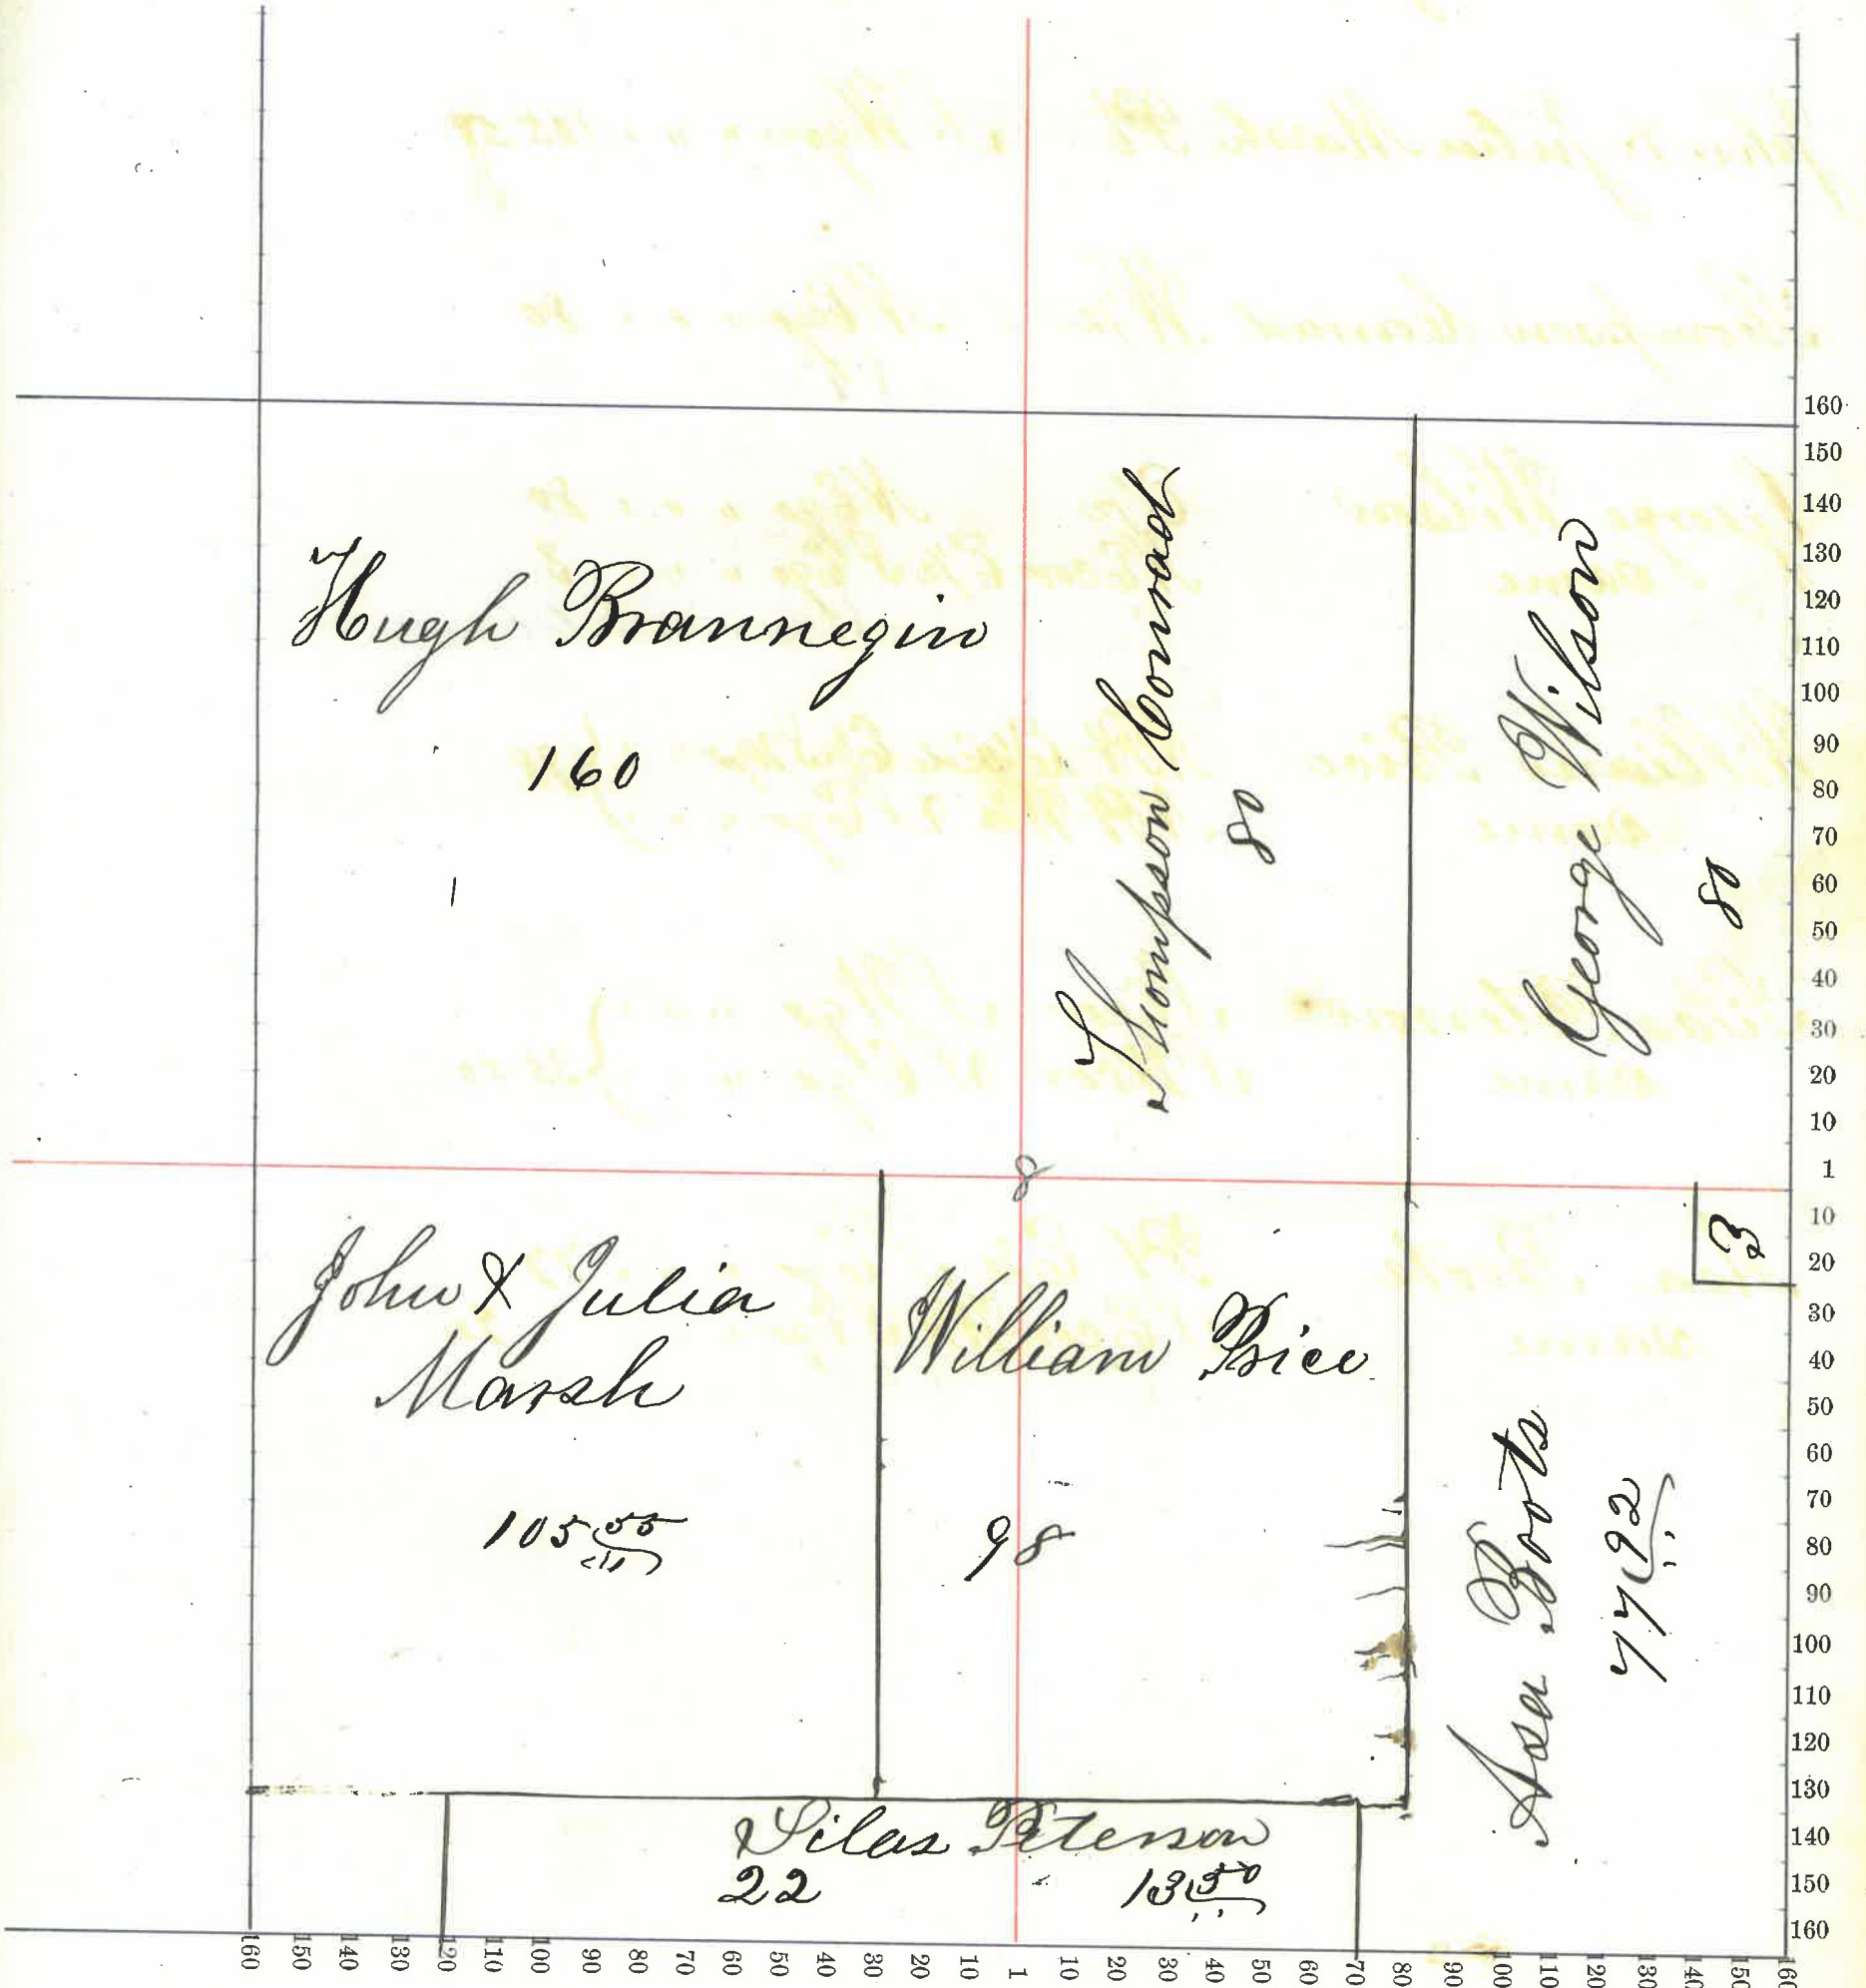 Hugh Brannegin
160
Thompson Conrad
80
George Wilson
80
8
John & Julia
Marsh
105 55
William Price
98
3
Asa Boots
77 92
Silas Peterson
22
13 50
160
150
140
130
120
110
100
90
80
70
60
50
40
30
20
10
1
10
20
30
40
50
60
70
80
90
100
110
120
130
140
150
160
160 150 140 130 120 110 100 90 80 70 60 50 40 30 20 10 1 10 20 30 40 50 60 70 80 90 100 110 120 130 140 150 160